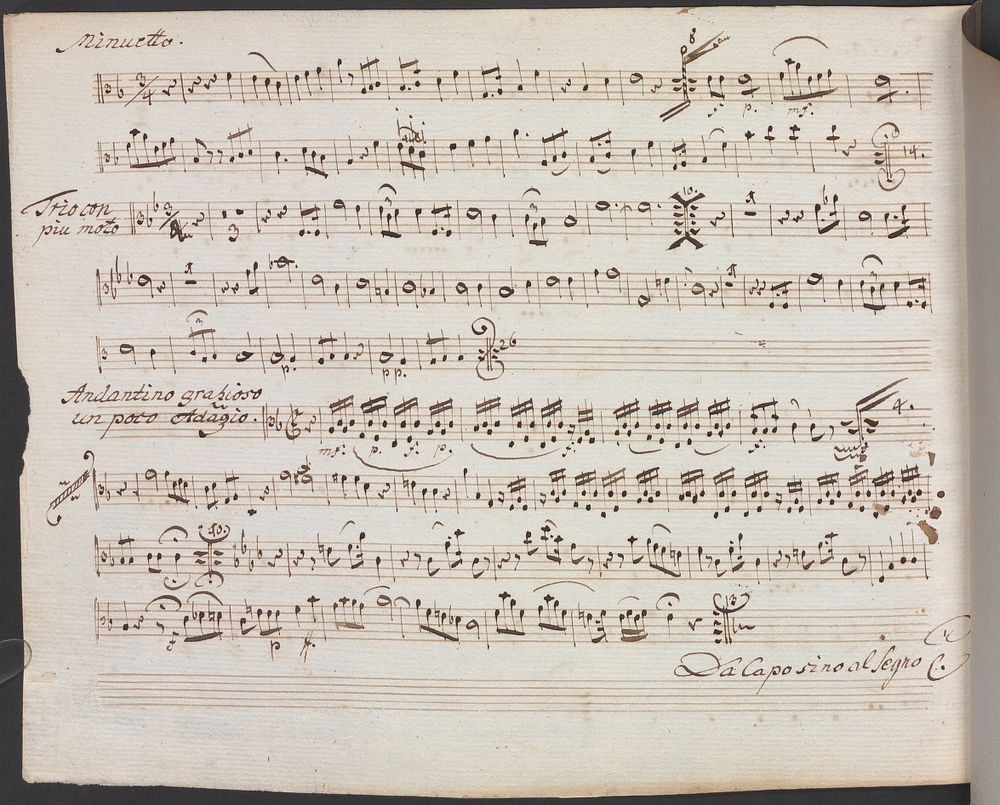 Minuetto.
8
f. p. mf.
14.
Trio con
piu moto
3
3
3
10.
3
3
p. pp. 26
Andantino grazioso
un poco Adagio.
mf. p. f. p. f. 4.
10
f p ff. 13
Da Capo sino al Segno